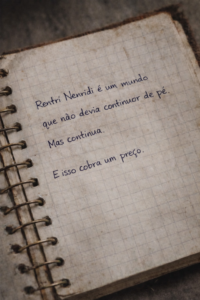 Rentri Nenridi é um mundo
que não devia continuor de pé.
Mas continua.
E isso cobra um preço.